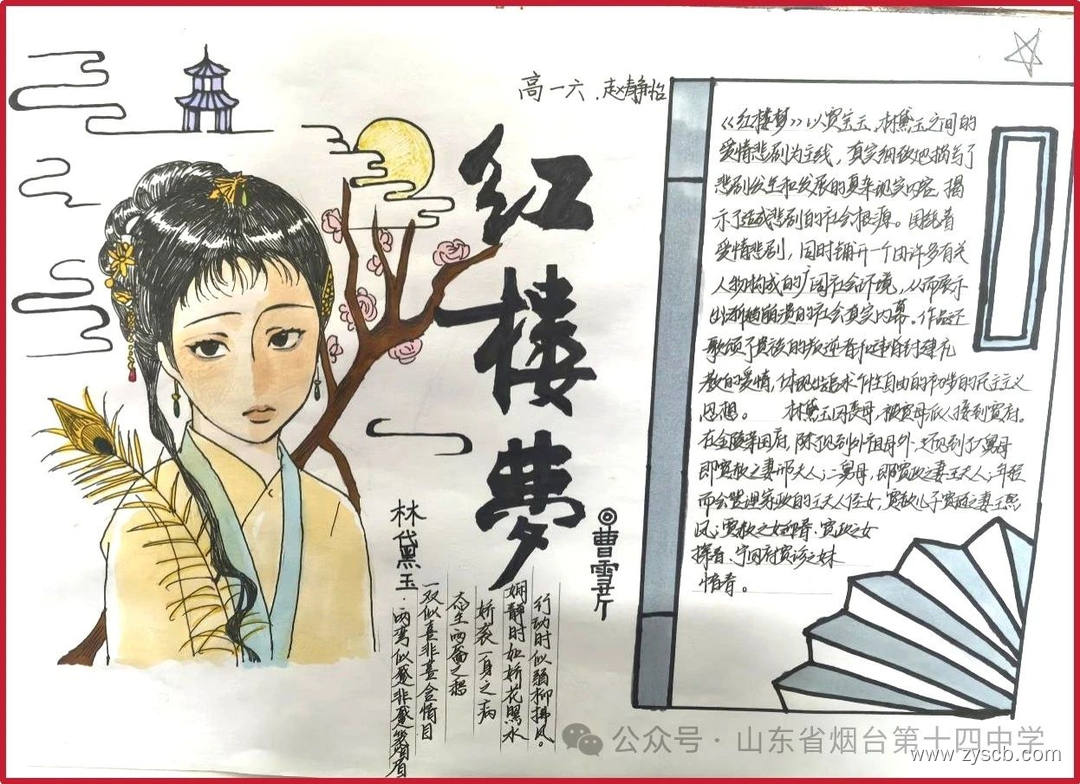 高一六.赵静怡
红楼梦
曹雪芹
《红楼梦》以贾宝玉、林黛玉之间的
爱情悲剧为主线，真实细致地描写了
悲剧发生和发展的复杂现实内容，揭
示了造成悲剧的社会根源。围绕着
爱情悲剧，同时铺开一个由许多有关
人物构成的广阔社会环境，从而展示
出渐趋崩溃的社会真实内幕。作品还
歌颂了贵族的叛逆者和违背封建礼
教的爱情，体现出追求个性自由的初步的民主主义
思想。 林黛玉因丧母，被贾母派人接到贾府。
在金陵荣国府，除了见到外祖母外，还见到了大舅母
即贾赦之妻邢夫人；二舅母，即贾政之妻王夫人；年轻
而会管理家政的王夫人侄女，贾赦儿子贾琏之妻王熙
凤；贾政之女迎春、贾政之女
探春、宁国府贾珍之妹
惜春。
林黛玉
两弯似蹙非蹙罥烟眉
一双似喜非喜含情目
态生两靥之愁
娇袭一身之病
娴静时如娇花照水
行动时似弱柳扶风。
公众号·山东省烟台第十四中学
www.zyscb.com